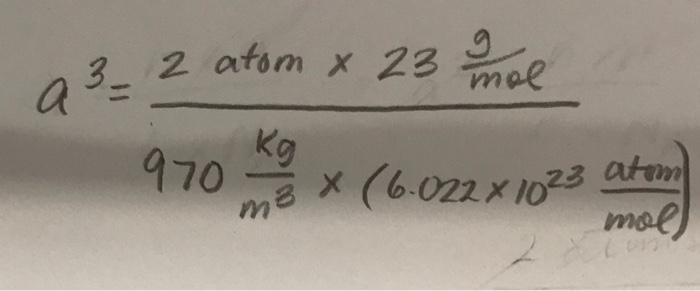 a³ = 2 atom × 23 g/mol
970 kg/m³ × (6.022 × 10²³ atom/mol)